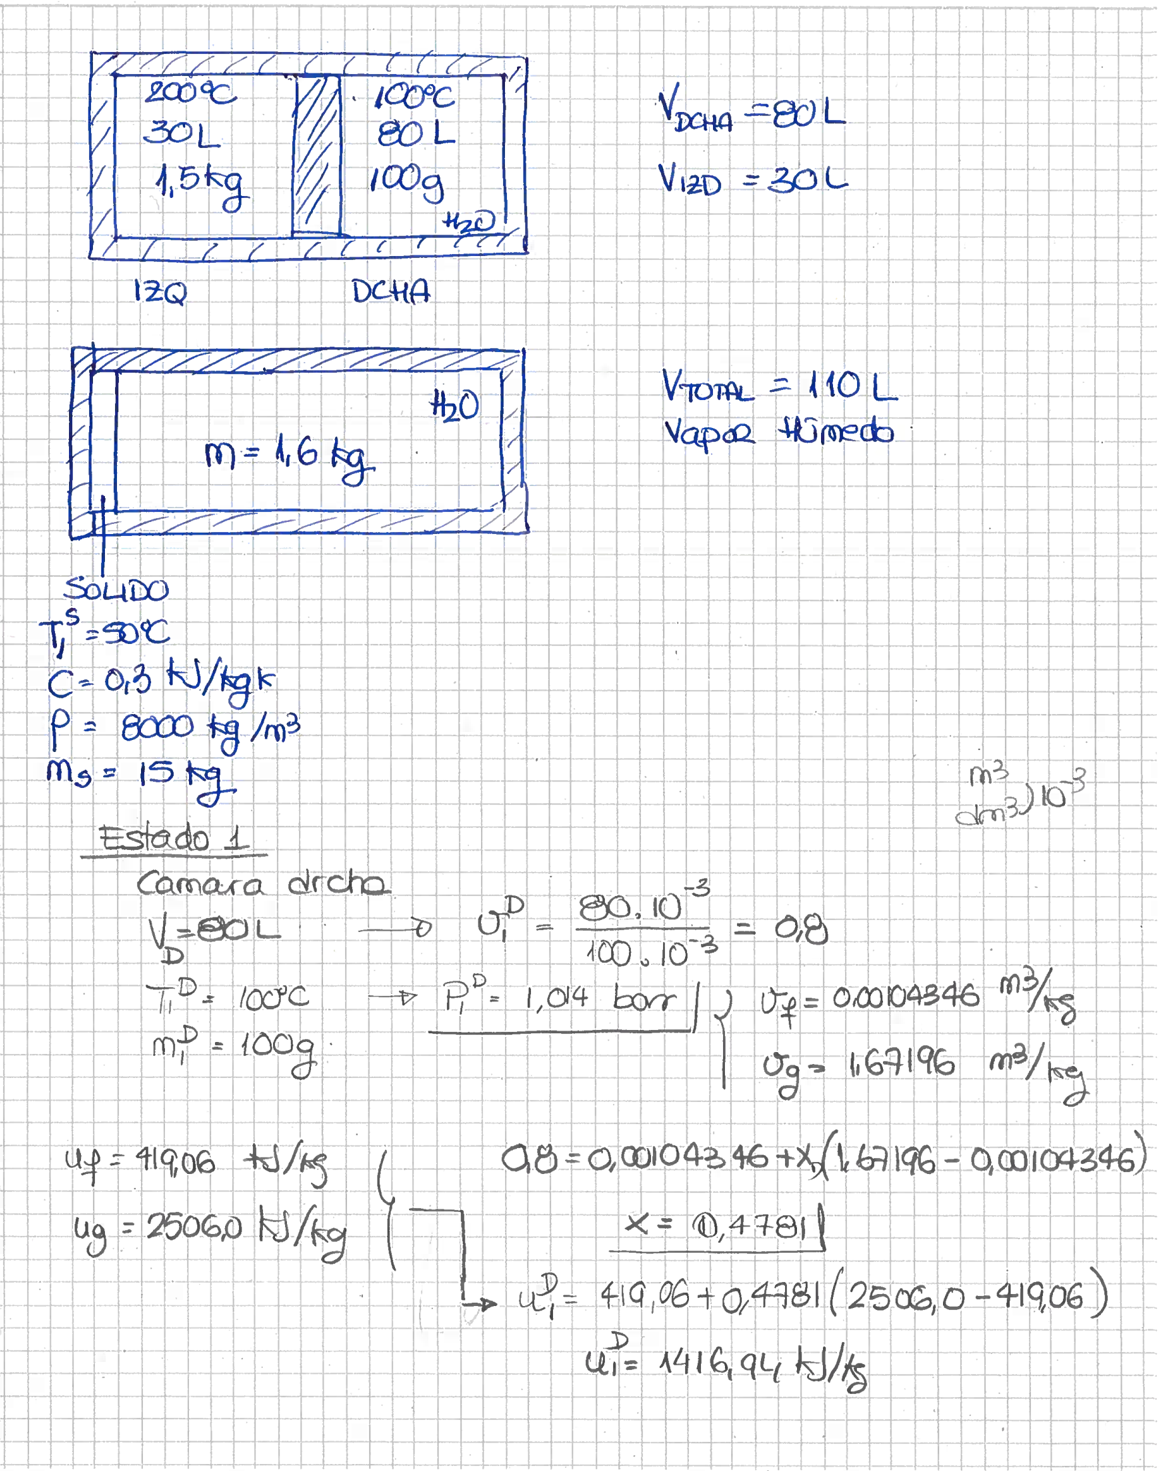 200ºC
30L
1,5kg
100ºC
80L
100g
H₂O
IZQ
DCHA
V_DCHA = 80L
V_IZD = 30L
H₂O
m = 1,6 kg
V_TOTAL = 110 L
Vapor Húmedo
SOLIDO
T₁ˢ = 50ºC
C = 0,3 kJ/kgK
ρ = 8000 kg/m³
m_s = 15 kg
m³
dm³ ) 10⁻³
Estado 1
Camara drcha
V_D = 80L → v₁ᴰ = 80.10⁻³ / 100.10⁻³ = 0,8
T₁ᴰ = 100ºC → P₁ᴰ = 1,014 bar } v_f = 0.00104346 m³/kg
m₁ᴰ = 100g
v_g = 1,67196 m³/kg
u_f = 419,06 kJ/kg
u_g = 2506,0 kJ/kg
0,8 = 0,00104346 + x₁(1,67196 - 0,00104346)
x = 0,4781
u₁ᴰ = 419,06 + 0,4781 (2506,0 - 419,06)
u₁ᴰ = 1416,94 kJ/kg